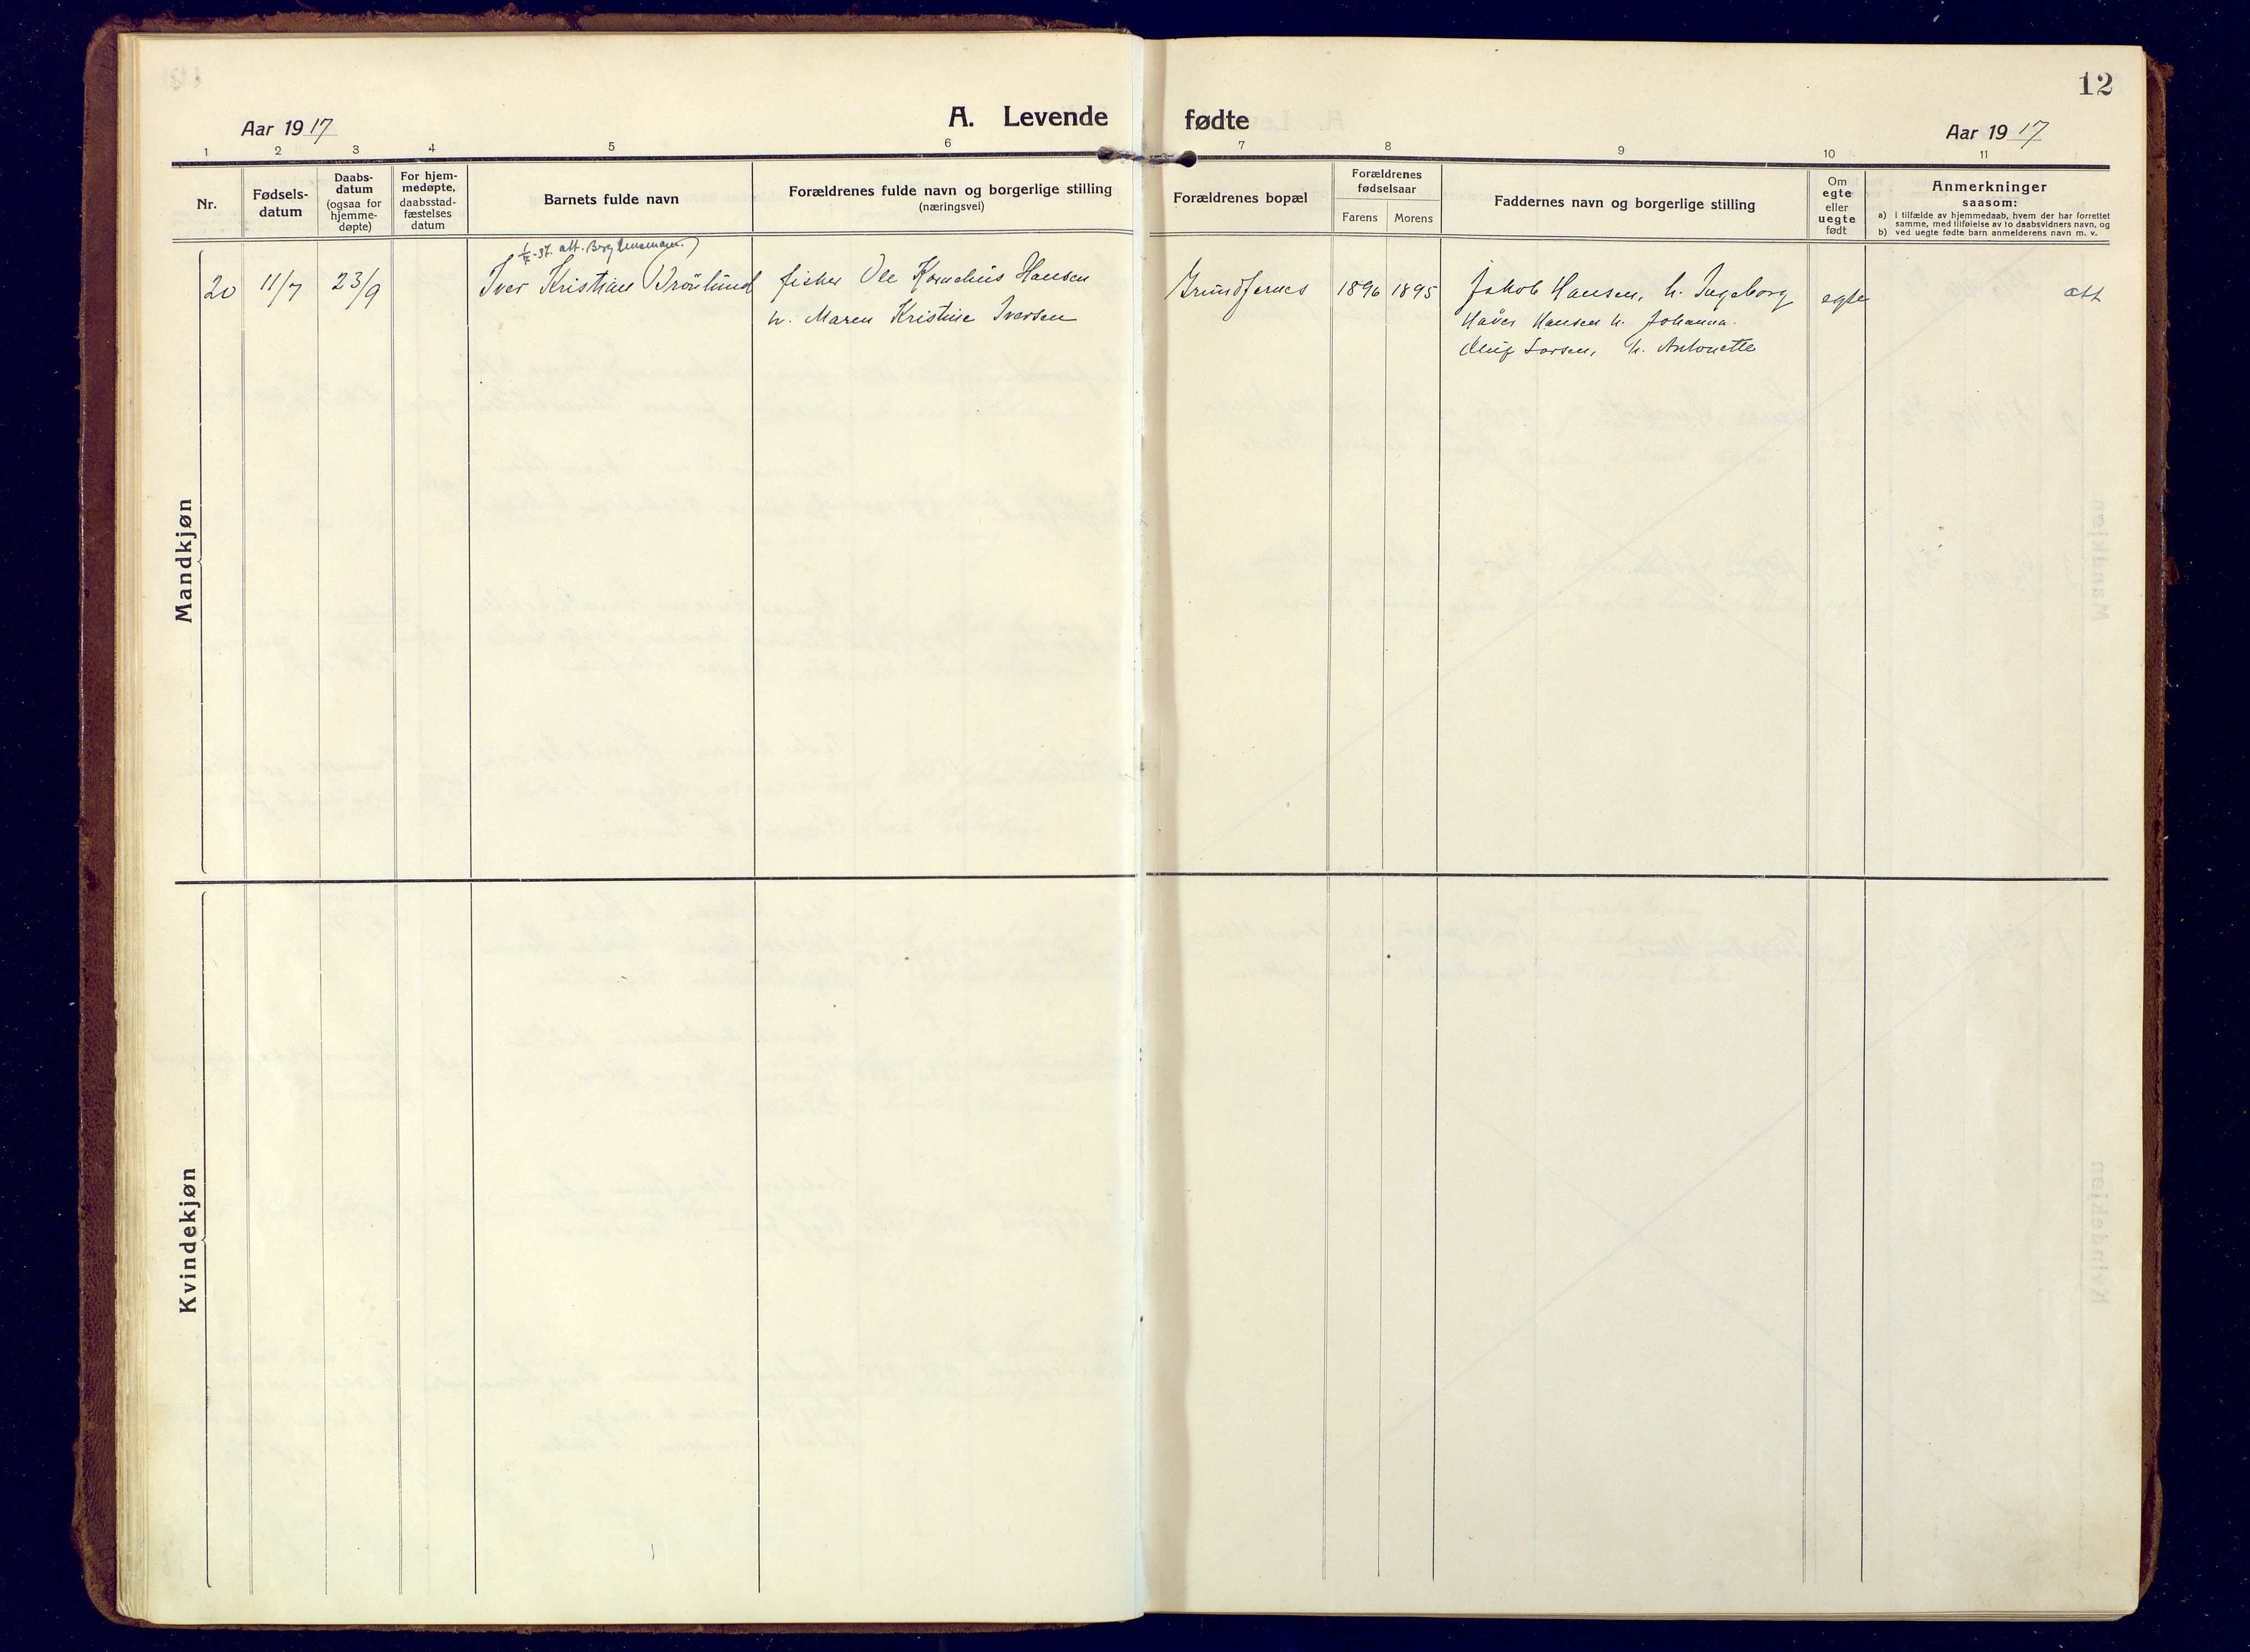 12
Aar 1917
A. Levende fødte
Aar 1917
1 2 3 4 5 6 7 8 9 10 11
Nr.
Fødsels-
datum
Daabs-
datum
(ogsaa for
hjemme-
døpte)
For hjem-
medøpte,
daabsstad-
fæstelses
datum
Barnets fulde navn
Forældrenes fulde navn og borgerlige stilling
(næringsvei)
Forældrenes bopæl
Forældrenes
fødselsaar
Farens Morens
Faddernes navn og borgerlige stilling
Om
egte
eller
uegte
født
Anmerkninger
saasom:
a) i tilfælde av hjemmedaab, hvem der har forrettet
samme, med tilføielse av to daabsvidners navn, og
b) ved uegte fødte barn anmelderens navn m. v.
Mandkjøn
37. att.
20 11/7 23/9 Iver Kristian fisker Ole Kornelius Hansen
h. Maren Kristine Iversen
1896 1895
Jakob Hansen, h. Ingeborg
Hansen h. Johanna.
Oluf Larsen, h. Antonette
egte
att
Kvindekjøn